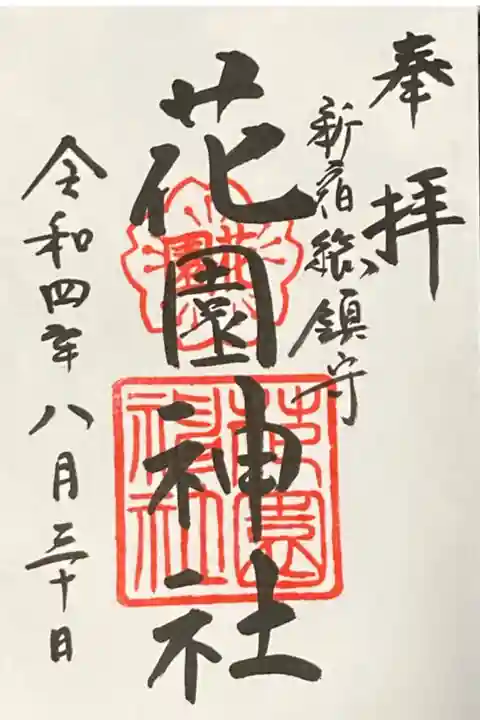 奉拝
新宿総鎮守
花園神社
花園
花園神社
令和四年八月三十日